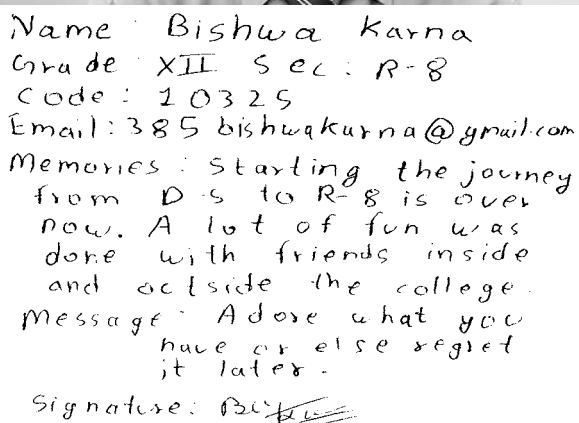 Name : Bishwa Karna
Grade : XII Sec : R-8
Code : 10325
Email : 385bishwakarna@gmail.com
Memories : Starting the journey
from D-5 to R-8 is over
now. A lot of fun was
done with friends inside
and octside the college.
Message : Adore what you
have or else regret
it later.
Signature :